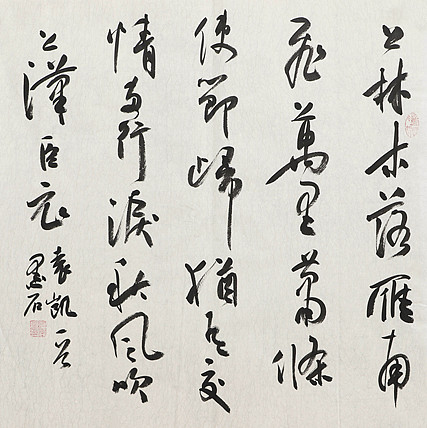 上林木落雁南
飛萬里蕭條
使節歸猶有交
情両行淚秋風吹
上漢臣衣
袁凱
墨石